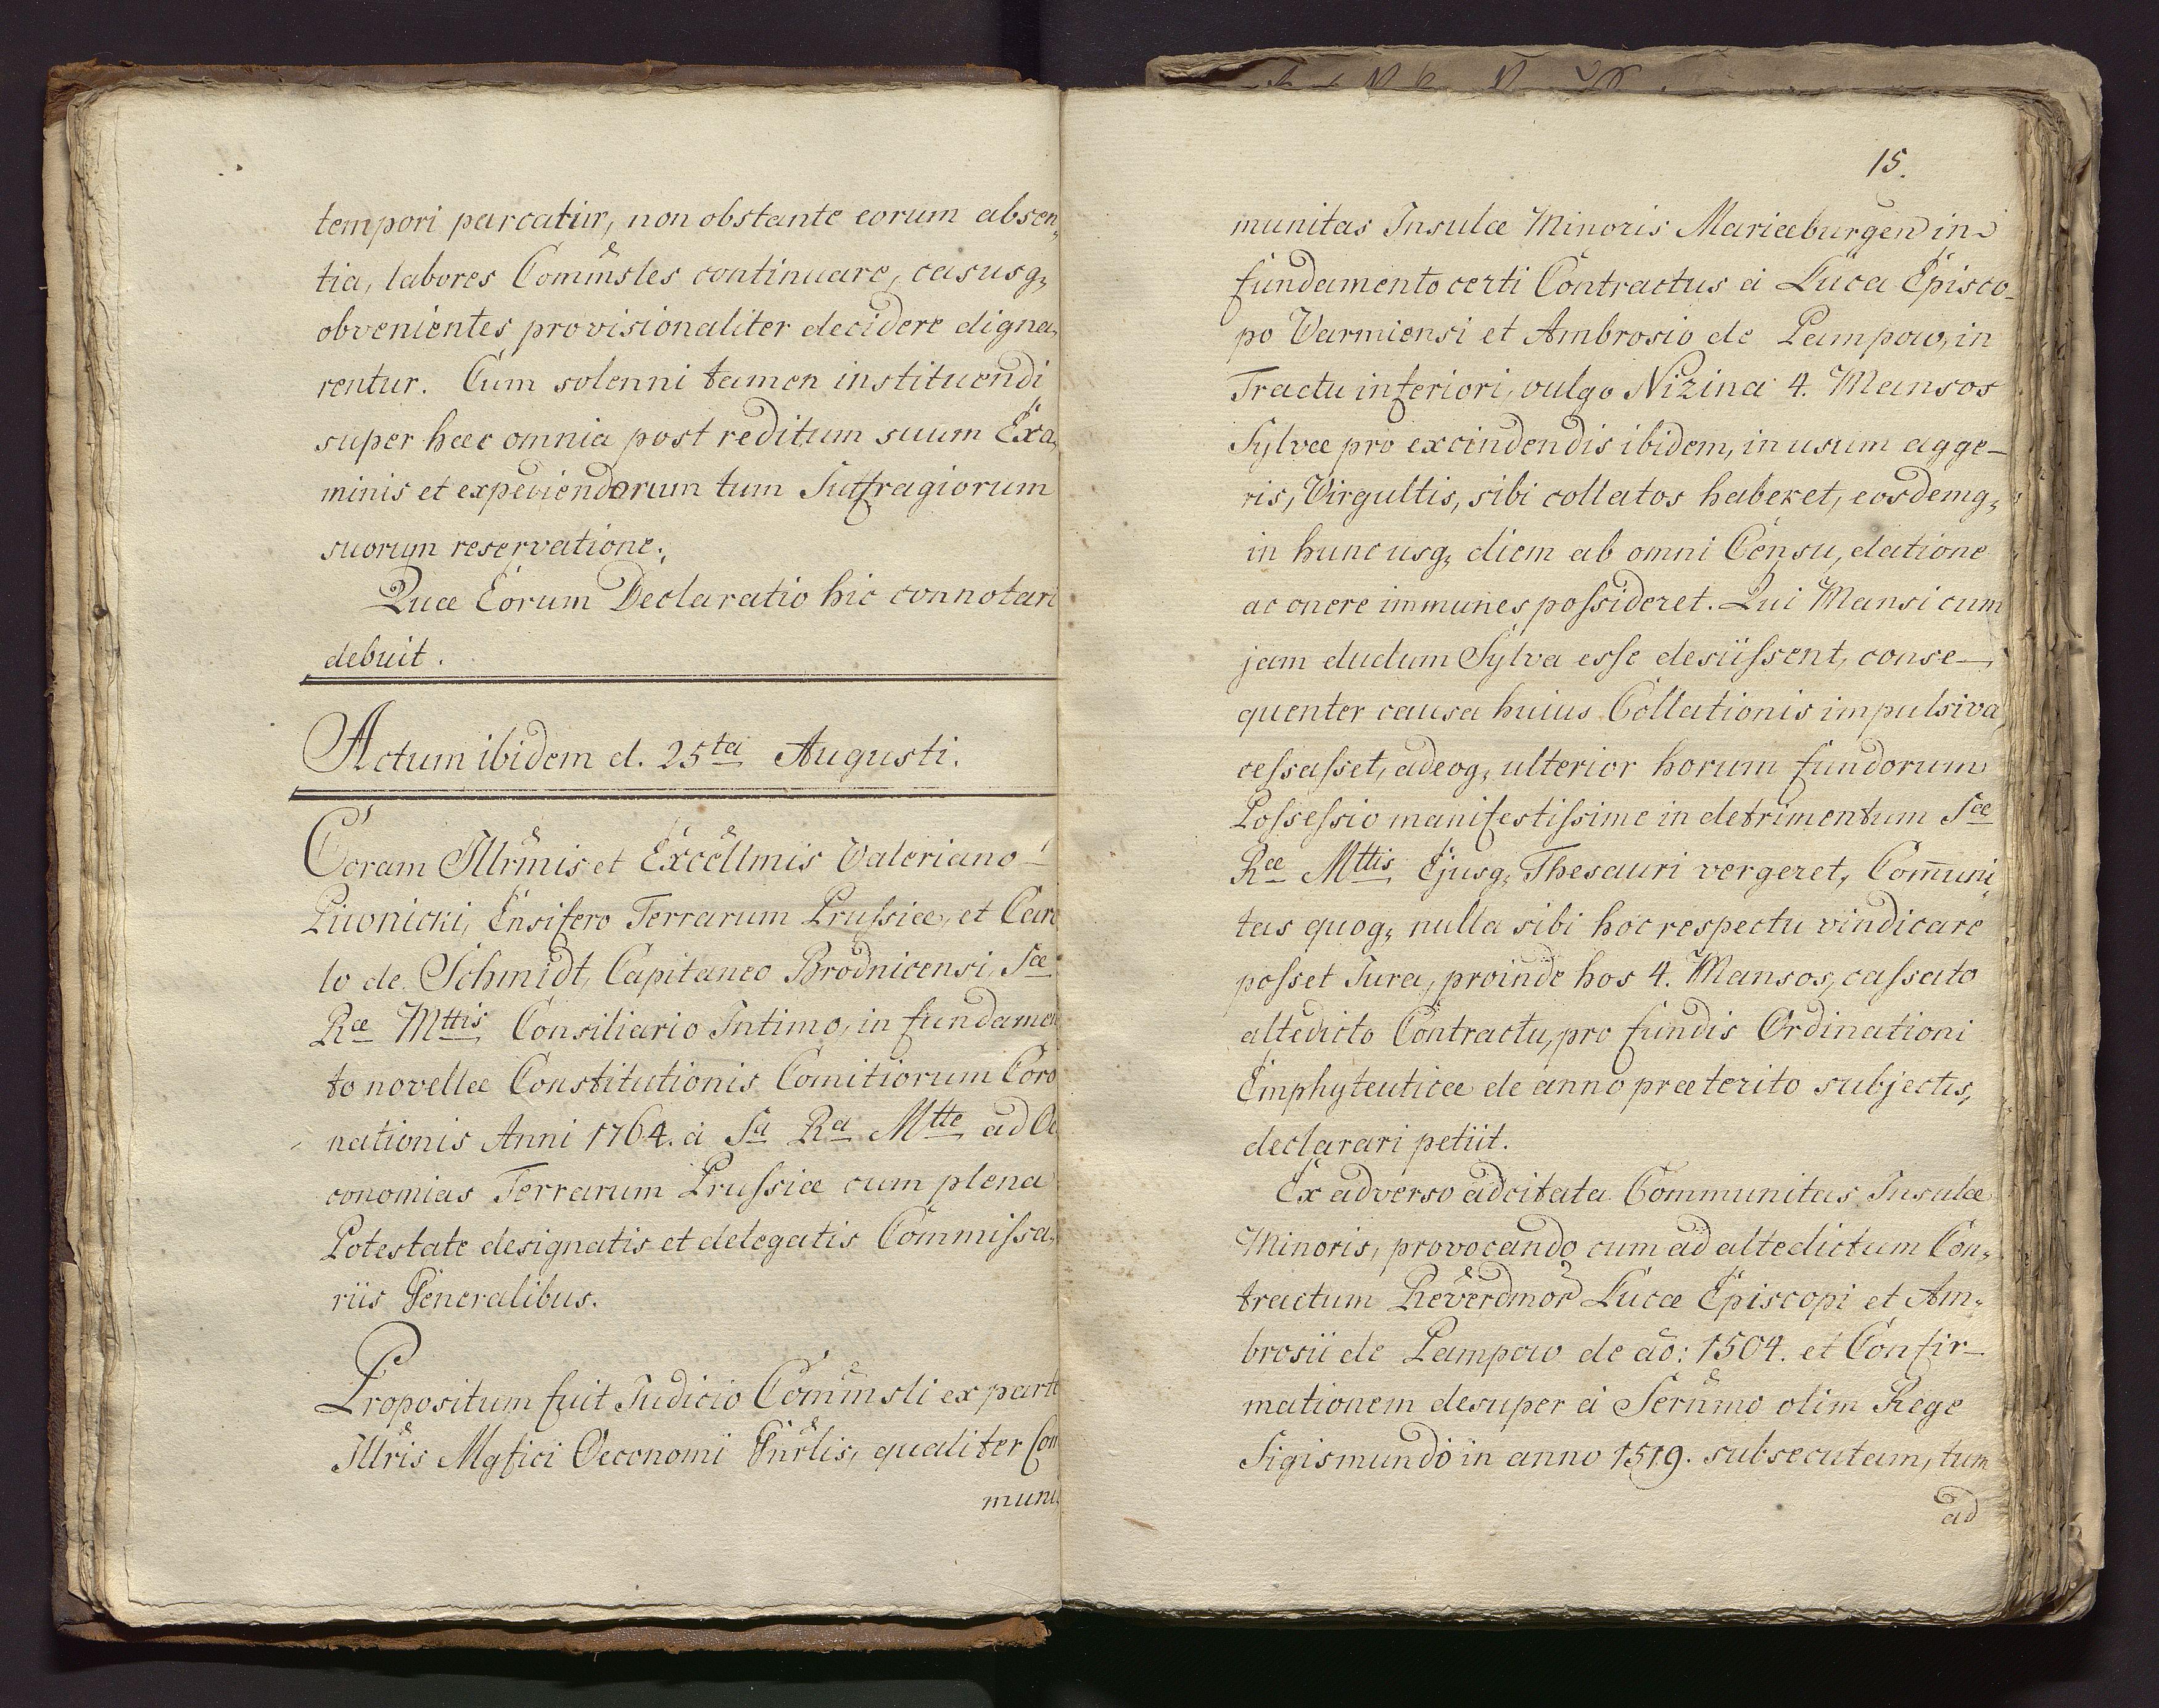 tempori parcatur, non obstante eorum absen,
tia, labores Commsles continuare, casusq,
obvenientes provisionaliter decidere digna,
rentur. Cum solenni tamen instituendi
super haec omnia post reditum suum Exa,
minis et expeviendorum tum Suffragiorum
suorum reservatione.
Quae Eorum Declaratio hic connotari
debuit.
Actum ibidem d. 25ta Augusti.
Coram Illrmis et Excellmis Valeriano
Piwnicki, Ensifero Terrarum Prussiae, et Caro
lo de Schmidt, Capitaneo Brodnicensi, Sae
Rae Mttis Consiliario Intimo, in fundamen
to novellae Constitutionis Comitiorum Coro
nationis Anni 1764. a Sa Ra Mtte ad Oe
conomias Terrarum Prussiae cum plena
Potestate designatis et delegatis Commissa,
riis Generalibus.
Propositum fuit Judicio Commsli ex parte
Illris Mgfici Oeconomi Gnrlis, qualiter Com
muni
15.
munitas Insulae Minoris Mariaeburgen in
fundamento certi Contractus a Luca Episco-
po Varmiensi et Ambrosio de Pampow, in
Tractu inferiori, vulgo Nizina 4. Mansos
Sylvae pro excindendis ibidem, in usum agge-
ris, Virgultis, sibi collatos haberet, eosdemq,
in hunc usq, diem ab omni Censu, datione
ac onere immunes possideret. Qui Mansi cum
jam dudum Sylva esse desiissent, conse-
quenter causa huius Collationis impulsiva
cessasset, adeoq, ulterior horum fundorum
Possessio manifestissime in detrimentum Sae
Rae Mttis Ejusq, Thesauri vergeret, Com̄uni,
tas quoq, nulla sibi hoc respectu vindicare
posset Jura, proinde hos 4. Mansos, cassato
altedicto Contractu, pro fundis Ordinationi
Emphyteuticae de anno praeterito subjectis,
declarari petiit.
Ex adverso adcitata Communitas Insulae
Minoris, provocando cum ad altedictum Con,
tractum Reverdmor Lucae Episcopi et Am,
brosii de Pampow de ao: 1504. et Confir-
mationem desuper a Sernmo olim Rege
Sigismundo in anno 1519. subsecutam, tum
ad